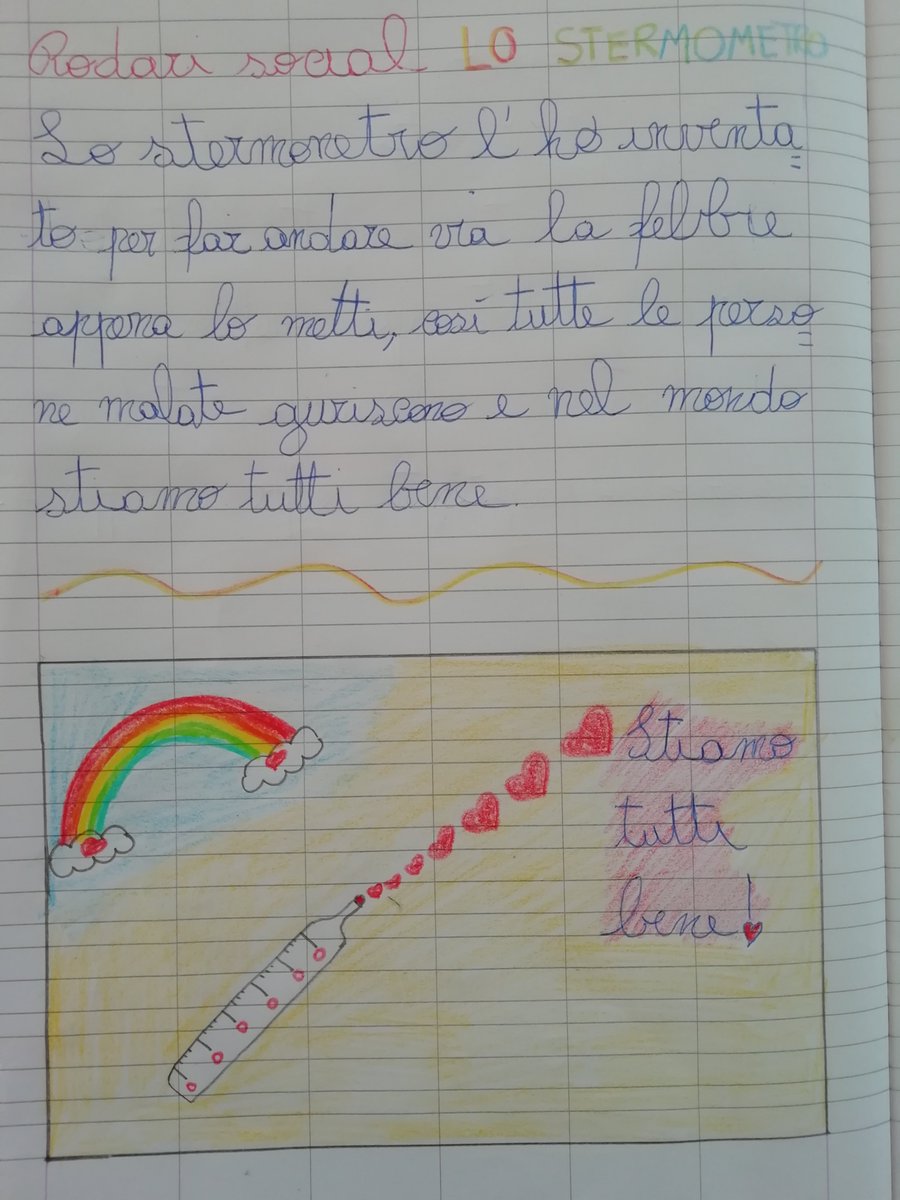 Rodari social LO STERMOMETRO
Lo stermometro l'ho inventa
to per far andare via la febbre
appena lo metti, così tutte le perso
ne malate guariscono e nel mondo
stiamo tutti bene.
Stiamo
tutti
bene!